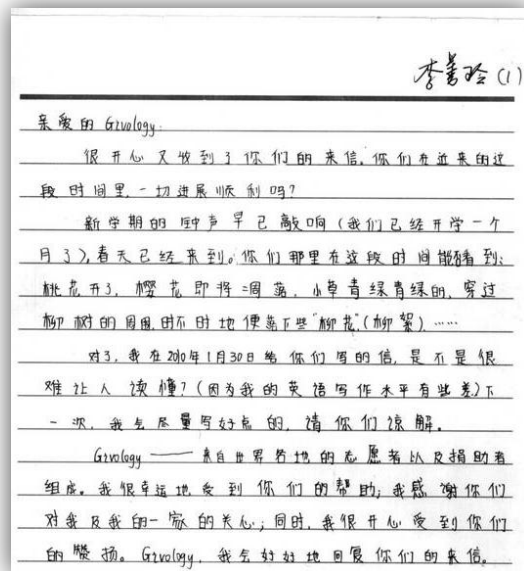 李善玲(1)
亲爱的Givology:
很开心又收到了你们的来信。你们在近来的这
段时间里,一切进展顺利吗?
新学期的钟声早已敲响(我们已经开学一个
月了),春天已经来到。你们那里在这段时间能看到:
桃花开了,樱花即将凋落,小草青绿青绿的,穿过
柳树的周围,时不时地便落下些"柳花"(柳絮)……
对了,我在2010年1月30日给你们写的信,是不是很
难让人读懂?(因为我的英语写作水平有些差)下
一次,我会尽量写好点的,请你们谅解。
Givology——来自世界各地的志愿者以及捐助者
组成。我很幸运地受到你们的帮助;我感谢你们
对我及我的一家的关心;同时,我很开心受到你们
的赞扬。Givology,我会好好地回复你们的来信。